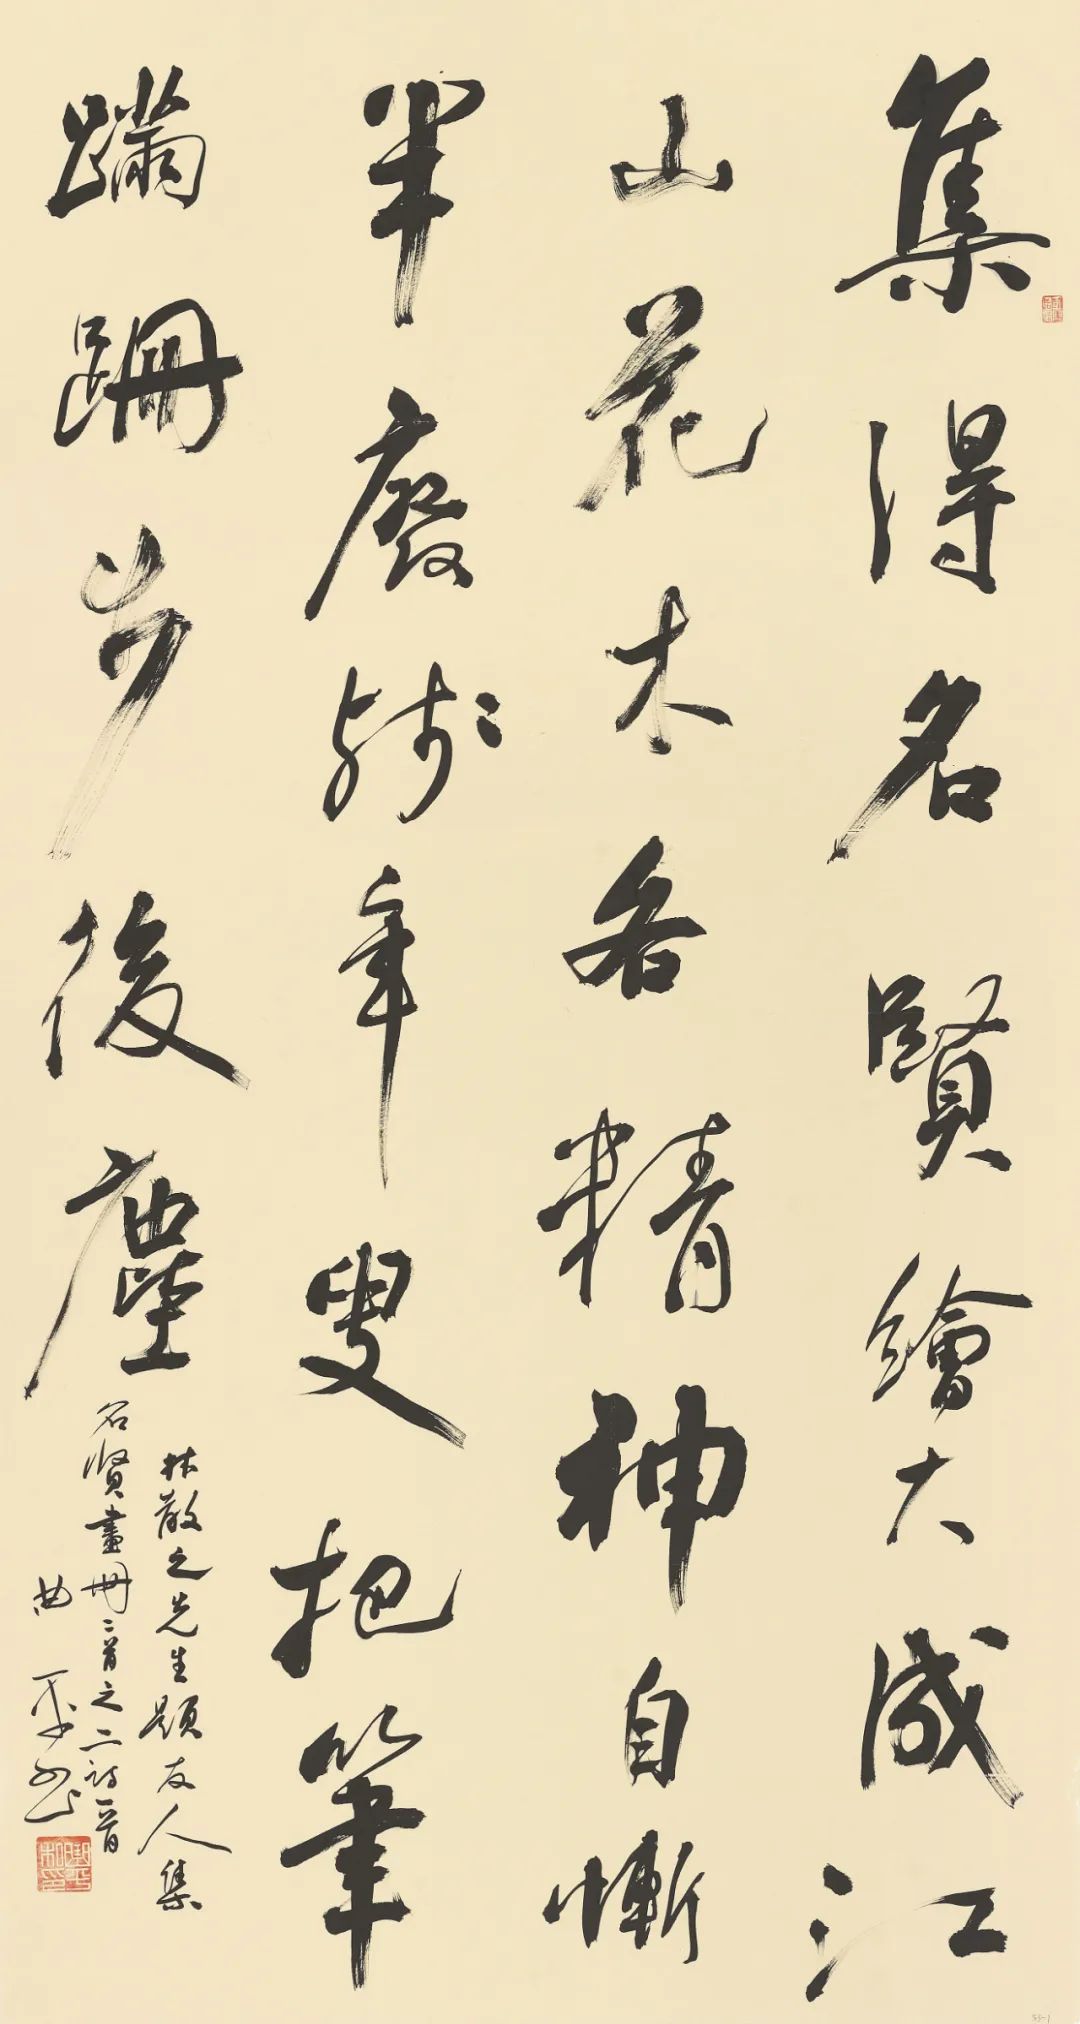 集得名賢繪大成江
山花木各精神自慚
半廢殘年叟把筆
蹣跚步後塵
林散之先生題友人集
名賢畫冊二首之二詩一首